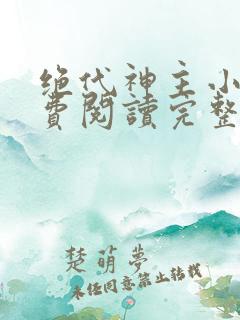 绝代神主小
費閱讀完整
楚萌夢
未经同意禁止转载